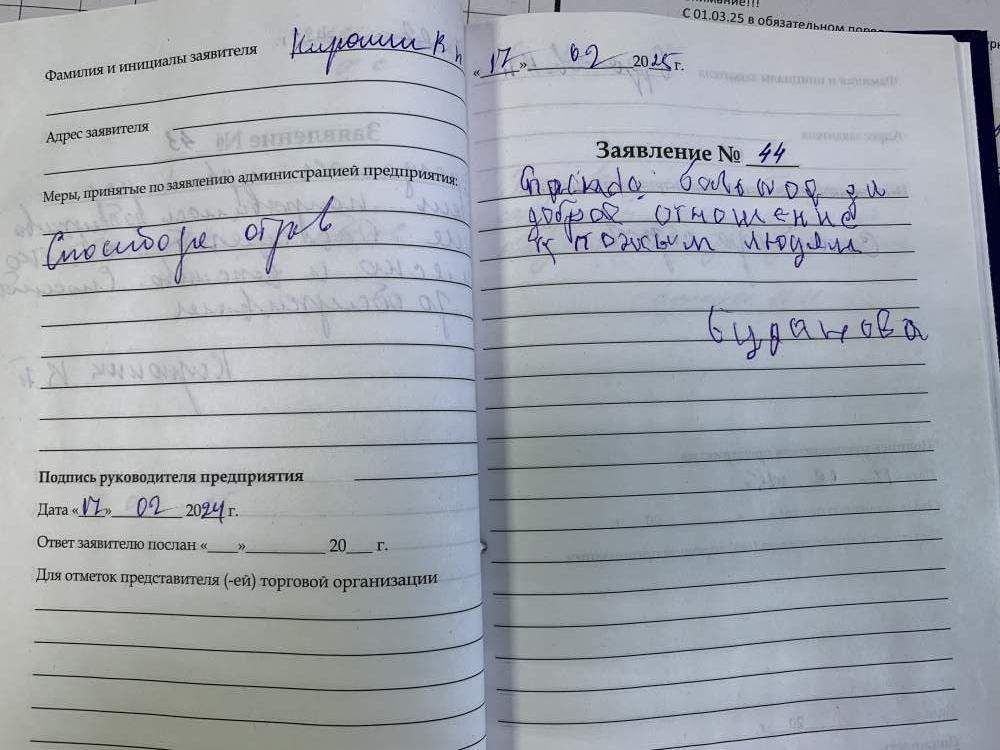 Фамилия и инициалы заявителя
Адрес заявителя
Меры, принятые по заявлению администрацией предприятия:
Подпись руководителя предприятия
Дата «17» 02 2024 г.
Ответ заявителю послан «    »          20    г.
Для отметок представителя (-ей) торговой организации
С 01.03.25 в обязательном
«17» 02 2025 г.
Заявление № 44
большое за
доброе отношение
к пожилым людям
Буданова